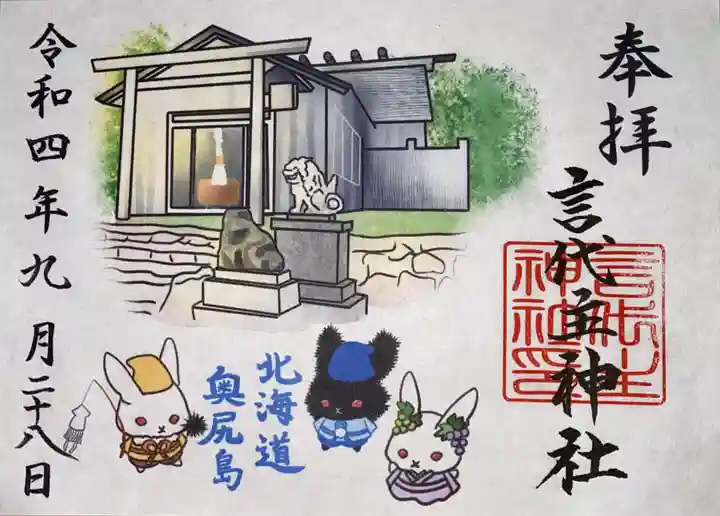 奉拝
言代主神社
北海道
奥尻島
令和四年九月二十八日